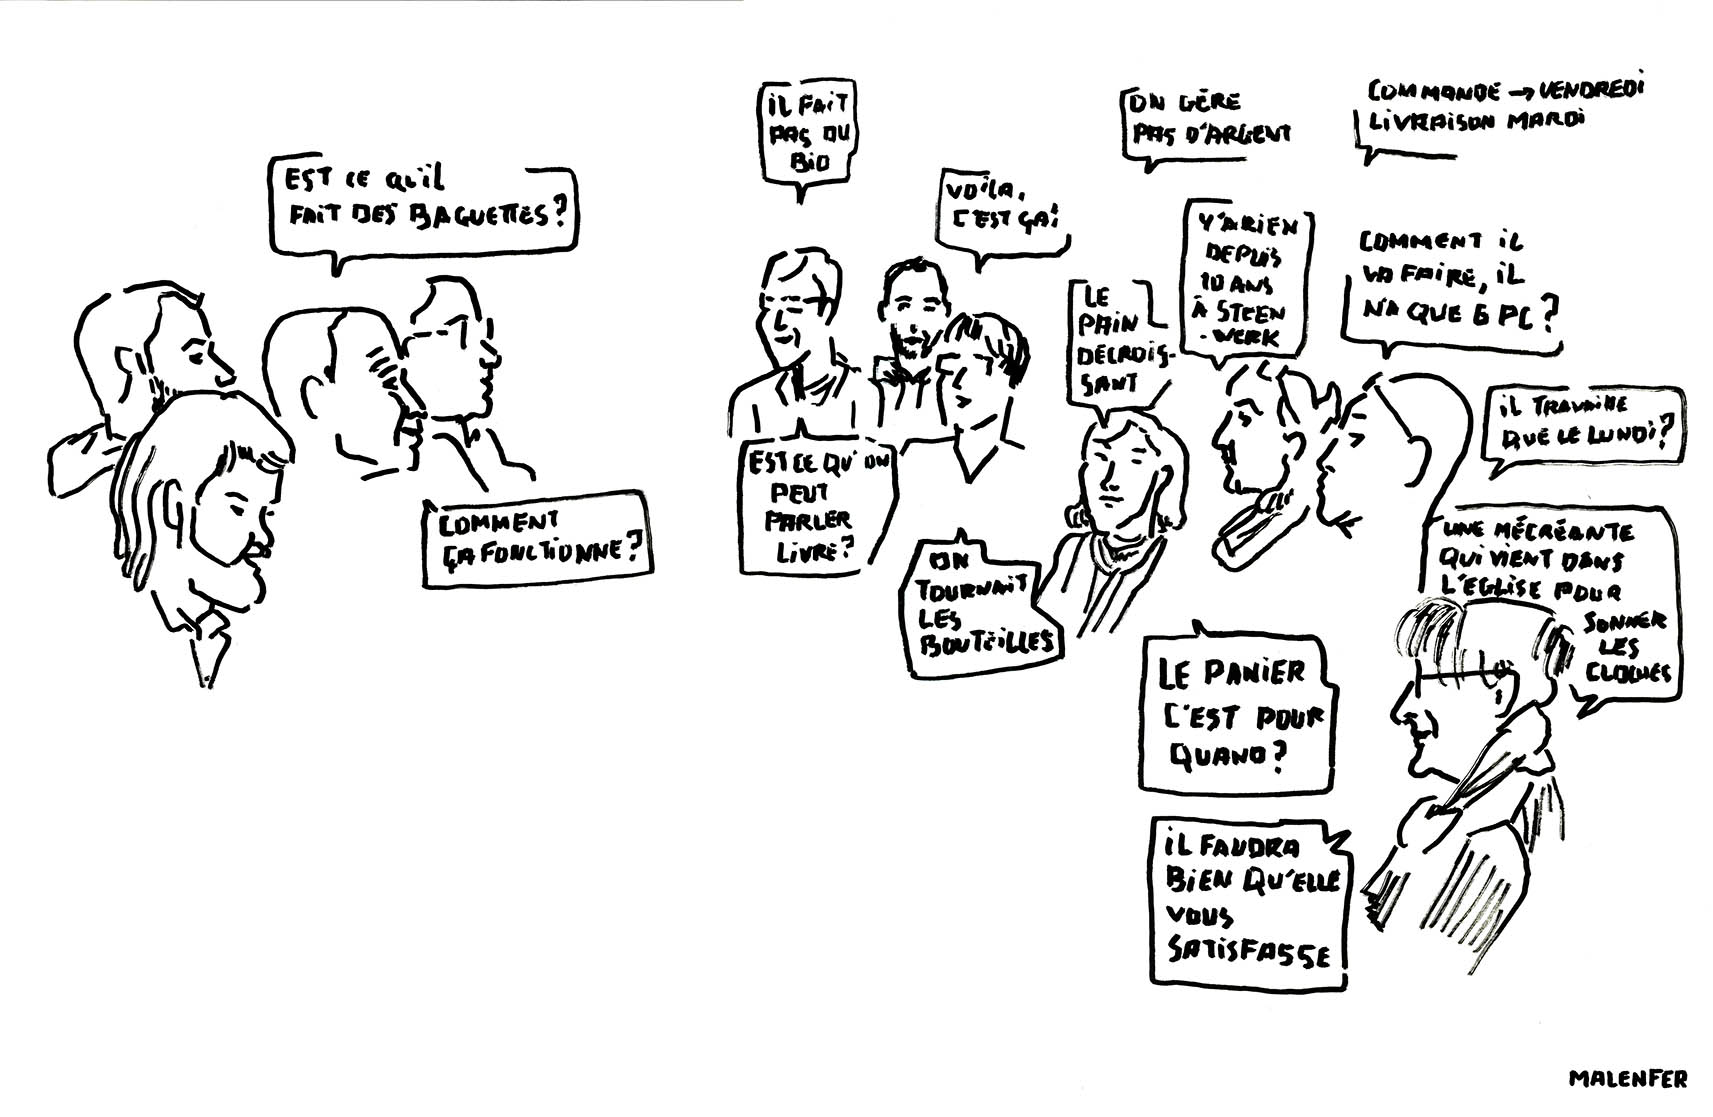 EST CE QU'IL
FAIT DES BAGUETTES?
COMMENT
ÇA FONCTIONNE?
IL FAIT
PAS DU
BIO
VOILA,
C'EST ÇA!
EST CE QU'ON
PEUT
PARLER
LIVRE?
ON
TOURNAIT
LES
BOUTEILLES
LE
PAIN
DÉCROIS-
SANT
ON GÈRE
PAS D'ARGENT
Y'A RIEN
DEPUIS
10 ANS
À STEEN
-WERK
COMMANDE → VENDREDI
LIVRAISON MARDI
COMMENT IL
VA FAIRE, IL
N'A QUE 6 PC?
IL TRAVAILLE
QUE LE LUNDI?
UNE MÉCRÉANTE
QUI VIENT DANS
L'EGLISE POUR
SONNER
LES
CLOCHES
LE PANIER
C'EST POUR
QUAND?
IL FAUDRA
BIEN QU'ELLE
VOUS
SATISFASSE
MALENFER